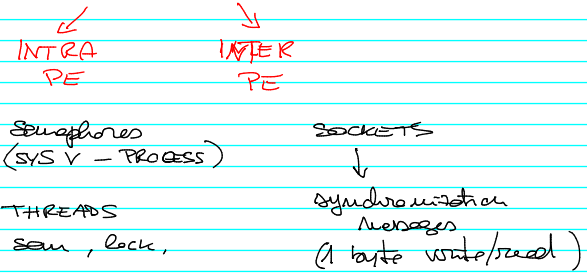 INTRA
PE
INTER
PE
Semaphores
(SYS V - PROCESS)
THREADS
sem, lock,
SOCKETS
synchronization
messages
(1 byte write/read)